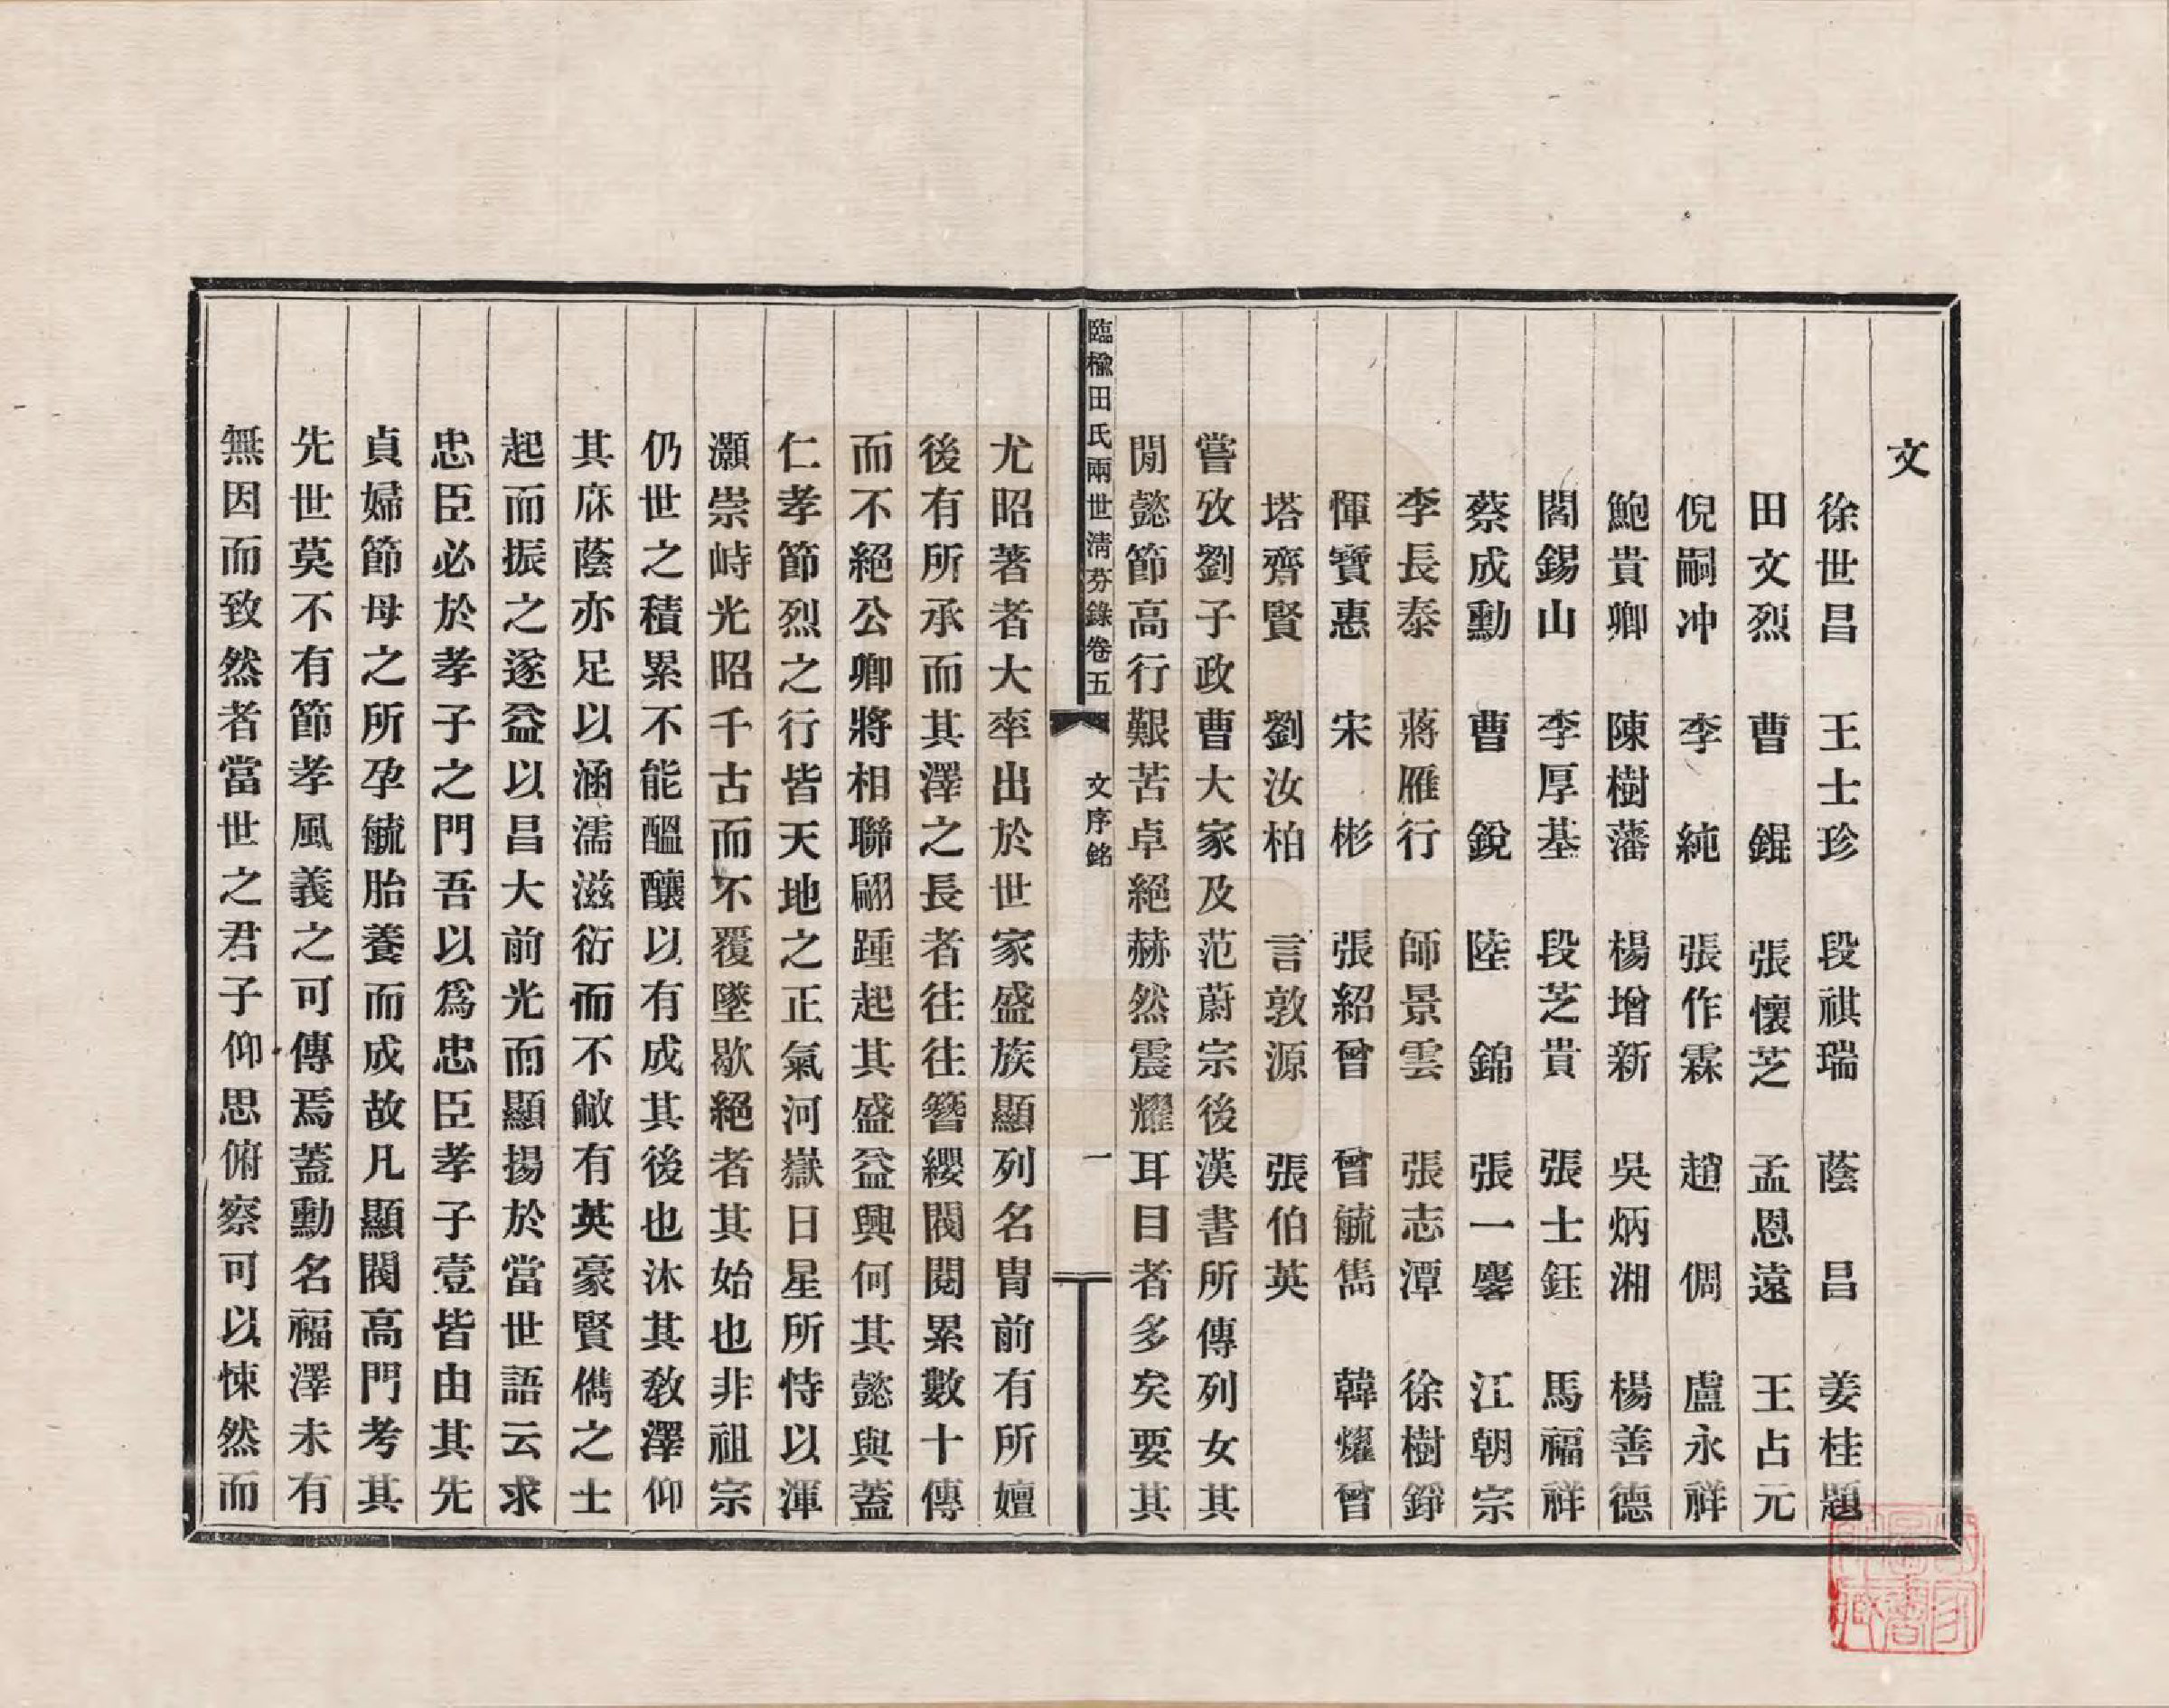 文
徐世昌 王士珍 段祺瑞 蔭昌 姜桂題
田文烈 曹錕 張懷芝 孟恩遠 王占元
倪嗣冲 李純 張作霖 趙倜 盧永祥
鮑貴卿 陳樹藩 楊增新 吳炳湘 楊善德
閻錫山 李厚基 段芝貴 張士鈺 馬福祥
蔡成勳 曹銳 陸錦 張一麐 江朝宗
李長泰 蔣雁行 師景雲 張志潭 徐樹錚
惲寶惠 宋彬 張紹曾 曾毓雋 韓燿曾
塔齊賢 劉汝柏 言敦源 張伯英
嘗攷劉子政曹大家及范蔚宗後漢書所傳列女其
閒懿節高行艱苦卓絕赫然震耀耳目者多矣要其
臨榆田氏兩世清芬錄卷五 文序銘 一
尤昭著者大率出於世家盛族顯列名冑前有所嬗
後有所承而其澤之長者往往簪纓閥閱累數十傳
而不絕公卿將相聯翩踵起其盛益興何其懿與蓋
仁孝節烈之行皆天地之正氣河嶽日星所恃以渾
灝崇峙光昭千古而不覆墜歇絕者其始也非祖宗
仍世之積累不能醞釀以有成其後也沐其教澤仰
其庥蔭亦足以涵濡滋衍而不敝有英豪賢儁之士
起而振之遂益以昌大前光而顯揚於當世語云求
忠臣必於孝子之門吾以爲忠臣孝子壹皆由其先
貞婦節母之所孕毓胎養而成故凡顯閥高門考其
先世莫不有節孝風義之可傳焉蓋勳名福澤未有
無因而致然者當世之君子仰思俯察可以悚然而